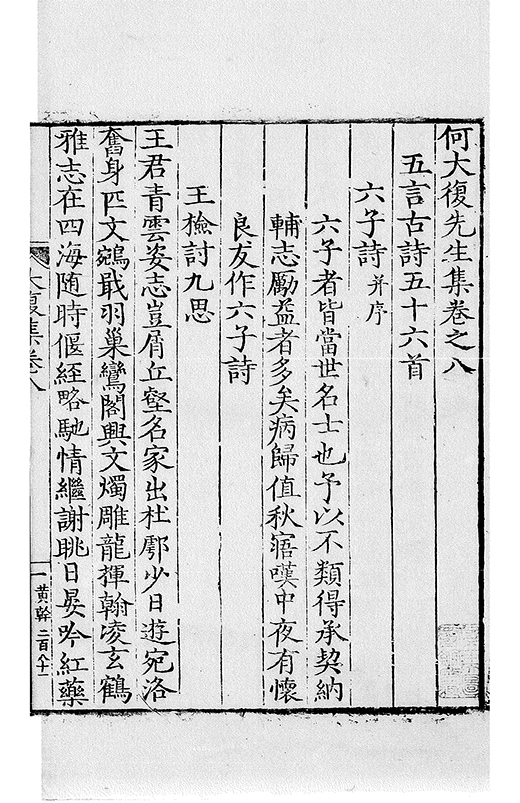 何大復先生集卷之八
五言古詩五十六首
六子詩 并序
六子者皆當世名士也予以不類得承契納
輔志勵益者多矣病歸值秋寤嘆中夜有懷
良友作六子詩
王檢討九思
王君青雲姿志豈屑丘壑名家出杜鄠少日遊宛洛
奮身匹文鵷戢羽巢鸞閣興文燭雕龍揮翰凌玄鶴
雅志在四海随時偃經略馳情繼謝眺日晏吟紅藥
大復集卷八
一 黄幹 二百